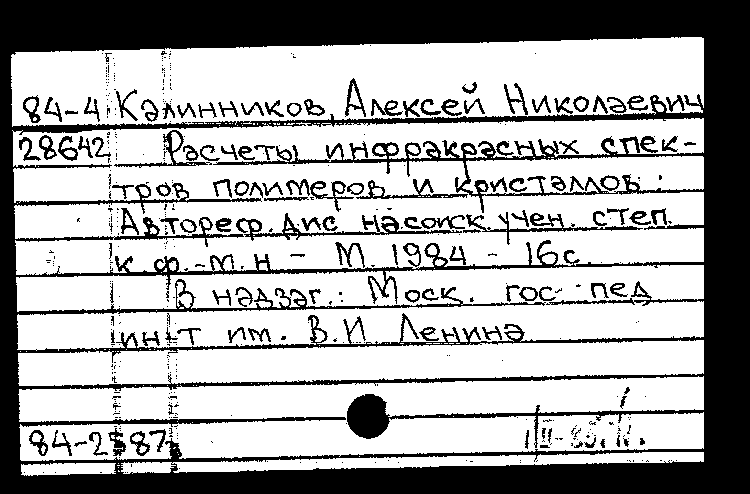 84-4 Калинников, Алексей Николаевич
28642 Расчеты инфракрасных спек-
тров полимеров и кристаллов:
Автореф. дис на соиск. учен. степ.
к. ф.-м. н - М. 1984 - 16с.
В надзаг.: Моск. гос. пед
ин-т им. В.И Ленина